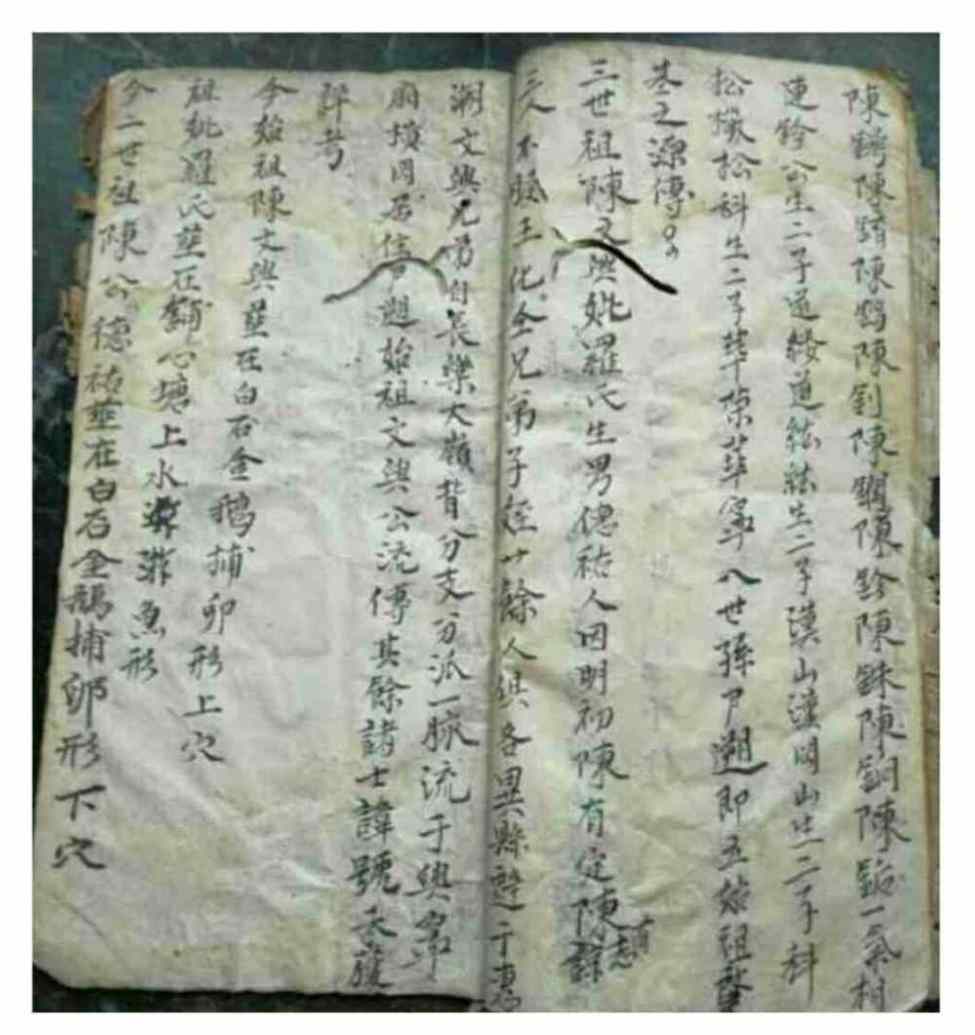 陳鏄陳錆陳鶴陳釗陳鋼陳鈴陳銖陳銅陳鈷一氣相
連鈴公生二子通綾道紘紘生二子漢山漢岡山生二子科
松檄松科生二子華榮華寧八世孫 遡即五始祖發
基之源傳
三世祖陳文興妣羅氏生男德祐人因明初陳有定陳 
三人不服王化全兄弟子姪廿餘人俱各異縣避于惠
潮文興兄弟自長樂大嶺背分支分派一脉流于興寧
岡墳岡居住 遡始祖文興公流傳其餘諸士諱號未獲
詳考
今始祖陳文興葬在白石金鵝捕卵形上穴
祖妣羅氏葬在 心塘上水 魚形
今二世祖陳公德祐葬在白石金鵝捕卵形下穴